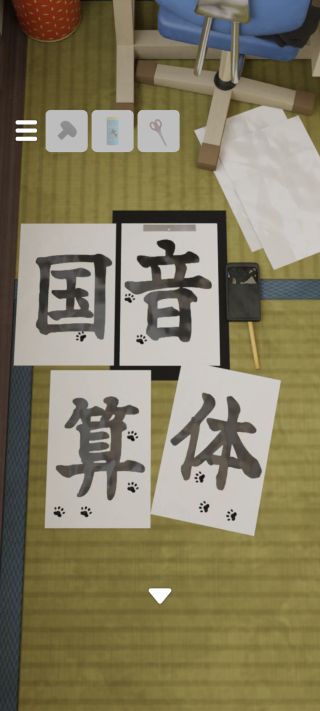 国音
算体